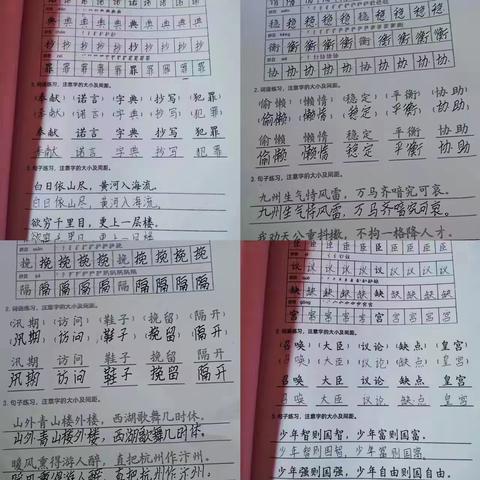 典 典 典 典 典 典 典
抄 抄 抄 抄 抄 抄 抄 抄 抄
罪 罪 罪 罪 罪 罪 罪 罪
2. 词语练习，注意字的大小及间距。
(奉献) (诺言) (字典) (抄写) (犯罪)
(奉献) (诺言) (字典) (抄写) (犯罪)
奉献 诺言 字典 抄写 犯罪
奉献 诺言 字典 抄写 犯罪
3. 句子练习，注意字的大小及间距。
白日依山尽，黄河入海流。
白日依山尽，黄河入海流。
欲穷千里目，更上一层楼。
欲穷千里目，更上一层楼
稳 稳 稳 稳 稳 稳 稳
衡 衡 衡 衡 衡 衡 衡
协 协 协 协 协 协 协 协
2. 词语练习，注意字的大小及间距。
偷懒 懒惰 稳定 平衡 协助
偷懒 懒情 稳定 平衡 协助
偷懒 懒情 稳定 平衡 协助
偷懒 懒情 稳定 平衡 协助
3. 句子练习，注意字的大小及间距。
九州生气恃风雷，万马齐喑究可哀。
九州生气恃风雷，万马齐喑究可哀。
我劝天公重抖擞，不拘一格降人才。
挽 挽 挽 挽 挽 挽 挽 挽
隔 隔 隔 隔 隔 隔 隔 隔
2. 词语练习，注意字的大小及间距。
(汛期) (访问) (鞋子) (挽留) (隔开)
(汛期) (访问) (鞋子) (挽留) (隔开)
汛期 访问 鞋子 挽留 隔开
汛期 访问 鞋子 挽留 隔开
3. 句子练习，注意字的大小及间距。
山外青山楼外楼，西湖歌舞几时休。
山外青山楼外楼，西湖歌舞几时休。
暖风熏得游人醉，直把杭州作汴州。
暖风熏得游人醉，直把杭州作汴州
臣 臣 臣 臣 臣 臣 臣
议 议 议 议 议 议 议 议
缺 缺 缺 缺 缺 缺 缺 缺
宫 宫 宫 宫 宫 宫 宫 宫
2. 词语练习，注意字的大小及间距。
(召唤) (大臣) (议论) (缺点) (皇宫)
(召唤) (大臣) (议论) (缺点) (皇宫)
召唤 大臣 议论 缺点 皇宫
召唤 大臣 议论 缺点 皇宫
3. 句子练习，注意字的大小及间距。
少年智则国智，少年富则国富。
少年智则国智，少年富则国富。
少年强则国强，少年自由则国自由。